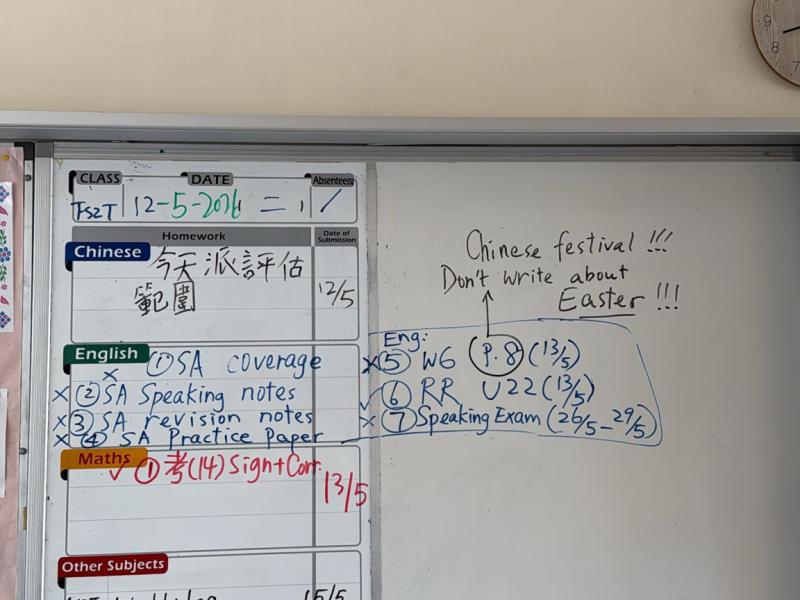 CLASS DATE Absentees
12-5-2026 二
Homework Date of Submission
Chinese 今天派評估
範圍 12/5
English ① SA coverage
× ② SA Speaking notes
× ③ SA revision notes
× ④ SA Practice Paper
Maths ✓ ① 考(14) Sign+Corr.
13/5
Other Subjects
15/5
Chinese festival !!!
Don't write about
Easter !!!
Eng:
× ⑤ WG P.8 (13/5)
✓ ⑥ RR U22 (13/5)
× ⑦ Speaking Exam (26/5-29/5)
9
8
7